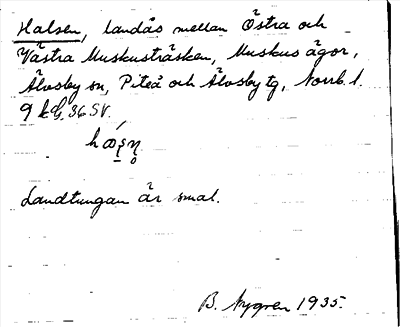 Halsen, landås mellan Östra och
Västra Muskusträsken, Muskus ägor,
Älvsby sn, Piteå och Älvsby tg, Norrb. l.
9 kB, 36 SV.
Landtungan är smal.
B. Nygren 1935.